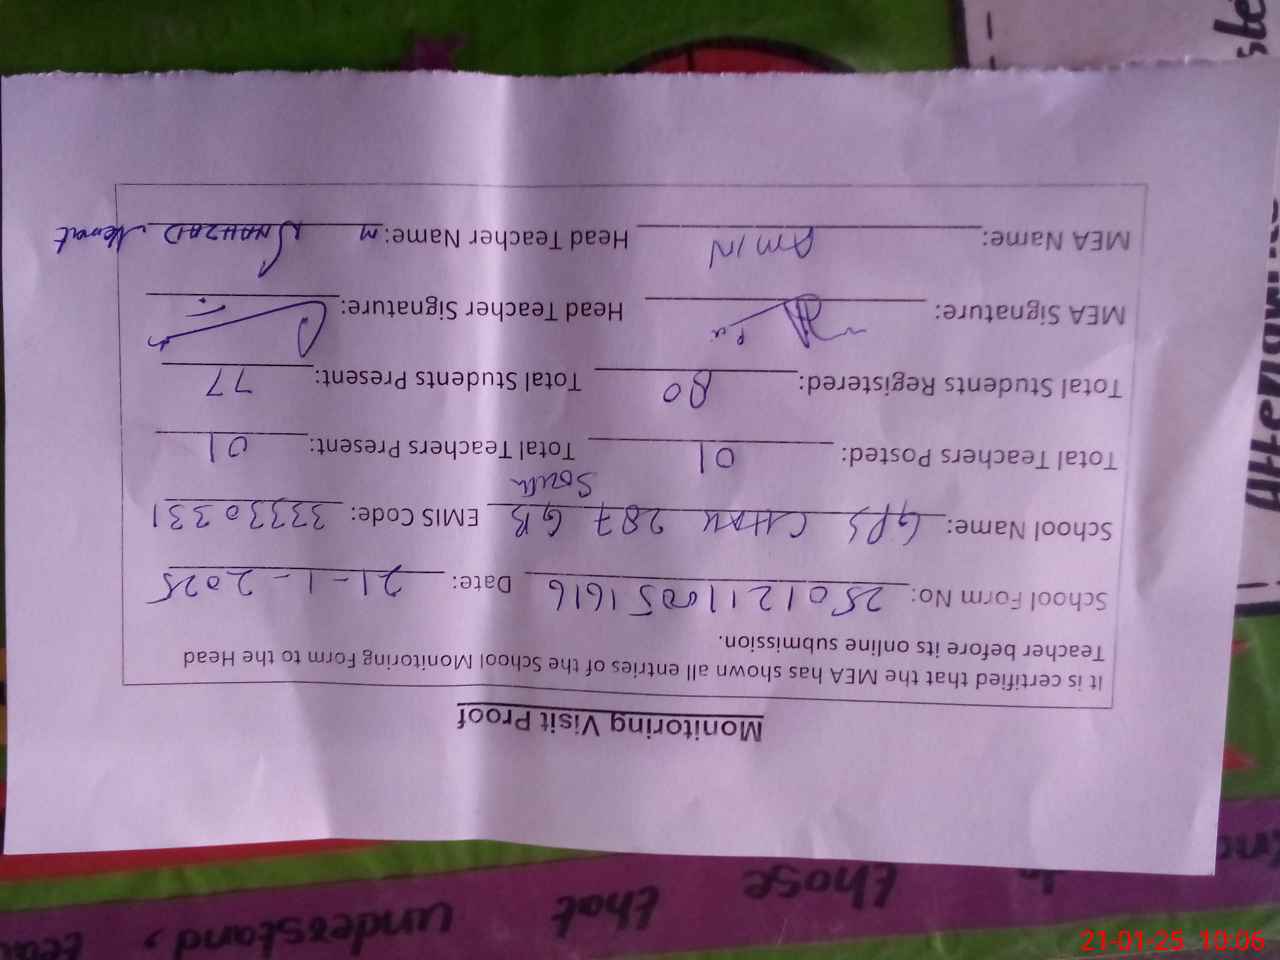 Monitoring Visit Proof
It is certified that the MEA has shown all entries of the School Monitoring Form to the Head
Teacher before its online submission.
School Form No: 2501211005 1616 Date: 21-1-2025
School Name: GPS CHAK 287 GB South EMIS Code: 33330331
Total Teachers Posted: 01 Total Teachers Present: 01
Total Students Registered: 80 Total Students Present: 77
MEA Signature: Head Teacher Signature:
MEA Name: AMIN Head Teacher Name: M SHAHZAD
those that understand,
21-01-25 10:06